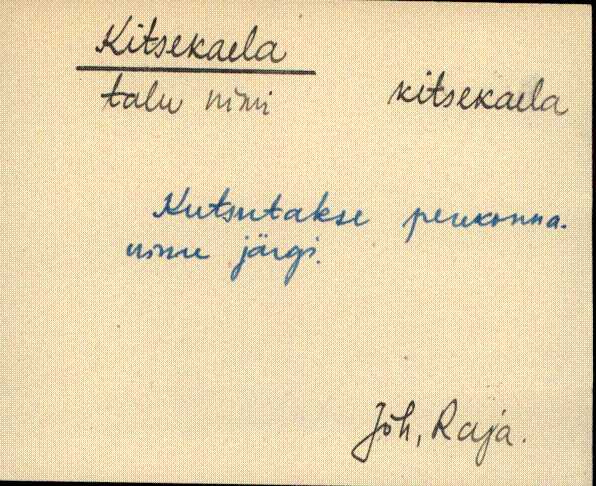 Kitsekaela
talu nimi kitsekaela
Kutsutakse perekonna-
nime järgi.
Jõh, Raja.